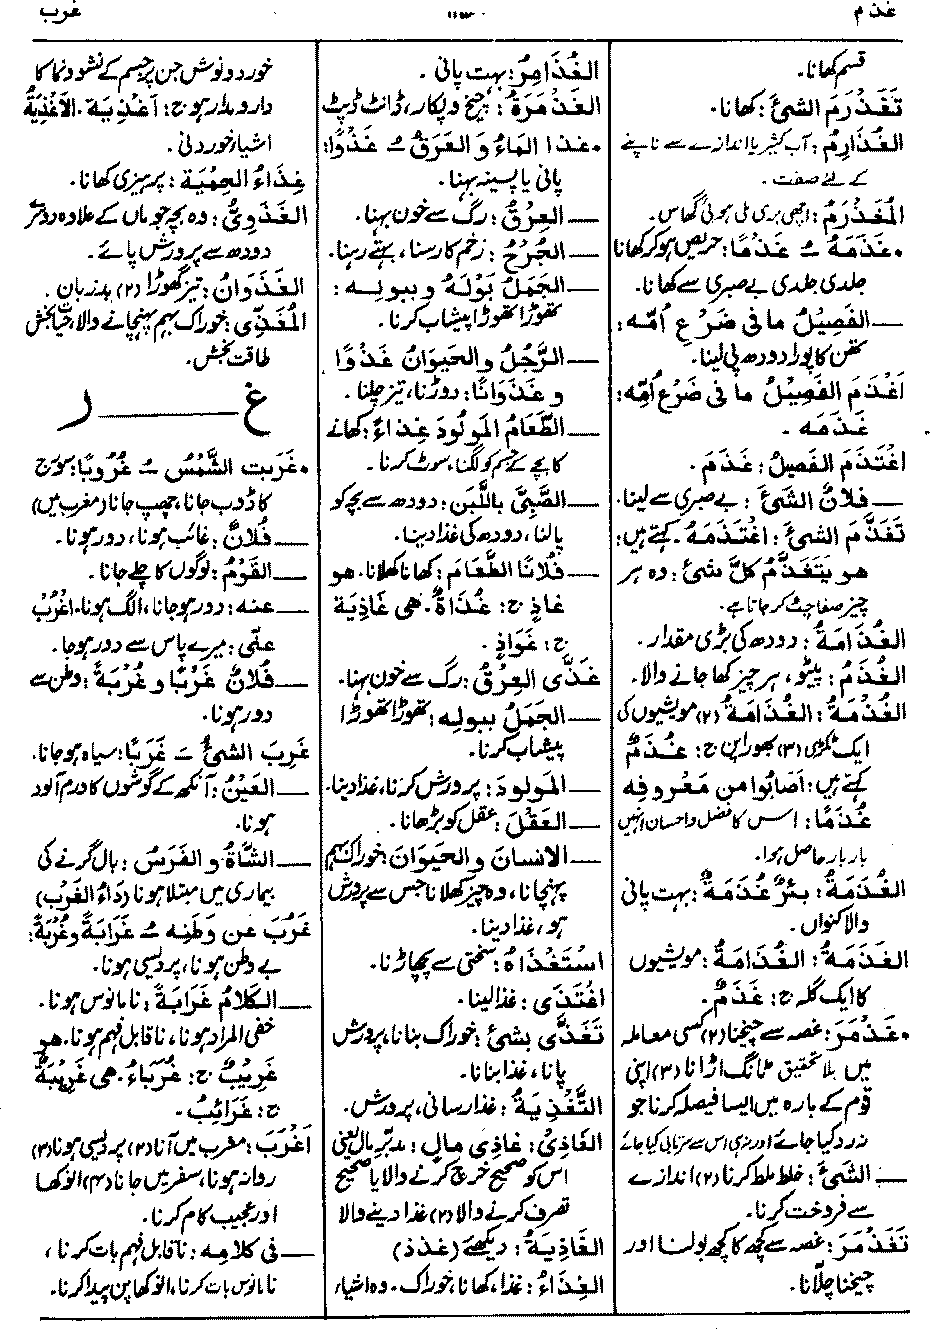 غذم
۱۱۵۳
غرب
قسم کھانا.
تَغَذْرَمَ الشیَٔ: کھانا.
الغُذَارِمُ: آب کثیر یا اندازے سے ناپنے
کے لئے صفت.
المُغَذْرَمُ: اچھی بری ملی ہوئی گھاس.
• غَذَمَهُ ـُ غَذْمًا: حریص ہو کر کھانا
جلدی جلدی بے صبری سے کھانا.
— الفَصِیْلُ ما فی ضَرْعِ اُمِّه:
تھن کا پورا دودھ پی لینا.
اَغْذَمَ الفَصِیْلُ ما فی ضَرْعِ اُمِّه:
غَذَمَه.
اغْتَذَمَ الفَصِیلُ: غَذَمَ.
— فلانٌ الشیَٔ: بے صبری سے لینا.
تَغَذَّمَ الشیَٔ: اغْتَذَمَهُ. کہتے ہیں:
هو یَتَغَذَّمُ کلَّ شیٔ: وہ ہر
چیز صفاچٹ کر جاتا ہے.
الغُذَامَةُ: دودھ کی بڑی مقدار.
الغُذَمُ: پیٹو، ہر چیز کھا جانے والا.
الغُذْمَةُ: الغُذَامَةُ (۲) مویشیوں کی
ایک ٹکڑی (۳) بھورا پن ج: غُذَمٌ
کہتے ہیں: اَصَابُوا مِن مَعْرُوفِه
غُذَمًا: اس کا فضل و احسان انہیں
بار بار حاصل ہوا.
الغُذَمَةُ: بِئْرٌ غُذَمَةٌ: بہت پانی
والا کنواں.
الغَذَمَةُ: الغُذَامَةُ: مویشیوں
کا ایک گلہ ج: غَذَمٌ.
• غَذْمَرَ: غصہ سے چیخنا (۲) کسی معاملہ
میں بلا تحقیق ٹانگ اڑانا (۳) اپنی
قوم کے بارہ میں ایسا فیصلہ کرنا جو
نہ رد کیا جائے اور نہ ہی اس سے سرتابی کیا جائے
— الشیَٔ: خلط ملط کرنا (۲) اندازے
سے فروخت کرنا.
تَغَذْمَرَ: غصہ سے کچھ کا کچھ بولنا اور
چیخنا چلّانا.
الغُذَامِرُ: بہت پانی.
الغَذْمَرَةُ: چیخ و پکار، ڈانٹ ڈپٹ
• غذا الماءُ و العَرَقُ ـُ غَذْوًا:
پانی یا پسینہ بہنا.
— العِرْقُ: رگ سے خون بہنا.
— الجُرْحُ: زخم کا رسنا، بہتے رہنا.
— الجَمَلُ بَوْلَهُ و ببولِه:
تھوڑا تھوڑا پیشاب کرنا.
— الرَّجُلُ والحَیَوانُ غَذْوًا
و غَذَوَانًا: دوڑنا، تیز چلنا.
— الطَّعَامُ المَولُودَ غِذاءً: کھانے
کا بچے کے جسم کو لگنا، سوٹ کرنا.
— الصَّبِیَّ باللَّبَنِ: دودھ سے بچہ کو
پالنا، دودھ کی غذا دینا.
— فلانًا الطَّعَامَ: کھانا کھلانا. هو
غاذٍ ج: غُذَاةٌ. هی غَاذِیَة
ج: غَوَاذٍ.
غَذَّی العِرْقُ: رگ سے خون بہنا.
— الجَمَلُ ببولِه: تھوڑا تھوڑا
پیشاب کرنا.
— المَولودَ: پرورش کرنا، غذا دینا.
— العَقْلَ: عقل کو بڑھانا.
— الانسانَ والحَیَوانَ: خوراک بہم
پہنچانا، وہ چیز کھلانا جس سے پرورش
ہو، غذا دینا.
اسْتَغْذَاهُ: سختی سے پچھاڑنا.
اغْتَذَی: غذا لینا.
تَغَذَّی بشیٔ: خوراک بنانا، پرورش
پانا، غذا بنانا.
التَّغْذِیَةُ: غذا رسانی، پرورش.
الغَاذِیْ: غاذِی مالٍ: مدبّر مال یعنی
اس کو صحیح خرچ کرنے والا یا صحیح
تصرف کرنے والا (۲) غذا دینے والا
الغَاذِیَةُ: دیکھئے (غذذ)
الغِذَاءُ: غذا، کھانا، خوراک. وہ اشیاء
خورد و نوش جن پر جسم کے نشو و نما کا
دارومدار ہو ج: اَغْذِیَة. الاَغْذِیَةُ
اشیاء خوردنی.
غِذَاءُ الحِمْیَةِ: پرہیزی کھانا.
الغَذَوِیُّ: وہ بچہ جو ماں کے علاوہ دوسرے
دودھ سے پرورش پائے.
الغَذَوَانُ: تیز گھوڑا (۲) بدزبان.
المُغَذِّی: خوراک بہم پہنچانے والا، حیات بخش
طاقت بخش.
غ — ر
• غَرَبَتِ الشَّمْسُ ـُ غُرُوبًا: سورج
کا ڈوب جانا، چھپ جانا (مغرب میں)
— فُلانٌ: غائب ہونا، دور ہونا.
— القَوْمُ: لوگوں کا چلے جانا.
— عنه: دور ہو جانا، الگ ہونا. اغْرُبْ
عنّی: میرے پاس سے دور ہو جا.
— فُلانٌ غَرْبًا و غُرْبَةً: وطن سے
دور ہونا.
غَرِبَ الشیُٔ ـَ غَرَبًا: سیاہ ہو جانا.
— العَیْنُ: آنکھ کے گوشوں کا ورم آلود
ہونا.
— الشَّاةُ و الفَرَسُ: بال گرنے کی
بیماری میں مبتلا ہونا (دَاءُ الغَرَبِ)
غَرُبَ عن وَطَنِه ـُ غَرَابَةً وغُرْبَةً:
بے وطن ہونا، پردیسی ہونا.
— الکَلامُ غَرَابَةً: نامانوس ہونا.
خفی المراد ہونا، ناقابل فہم ہونا. هو
غَرِیْبٌ ج: غُرَبَاءُ. هی غَرِیْبَةٌ
ج: غَرَائِبُ.
اَغْرَبَ: مغرب میں آنا (۲) پردیسی ہونا (۳)
روانہ ہونا، سفر میں جانا (۴) انوکھا
اور عجیب کام کرنا.
— فی کلامِه: ناقابل فہم بات کرنا،
نامانوس بات کرنا، انوکھا پن پیدا کرنا.